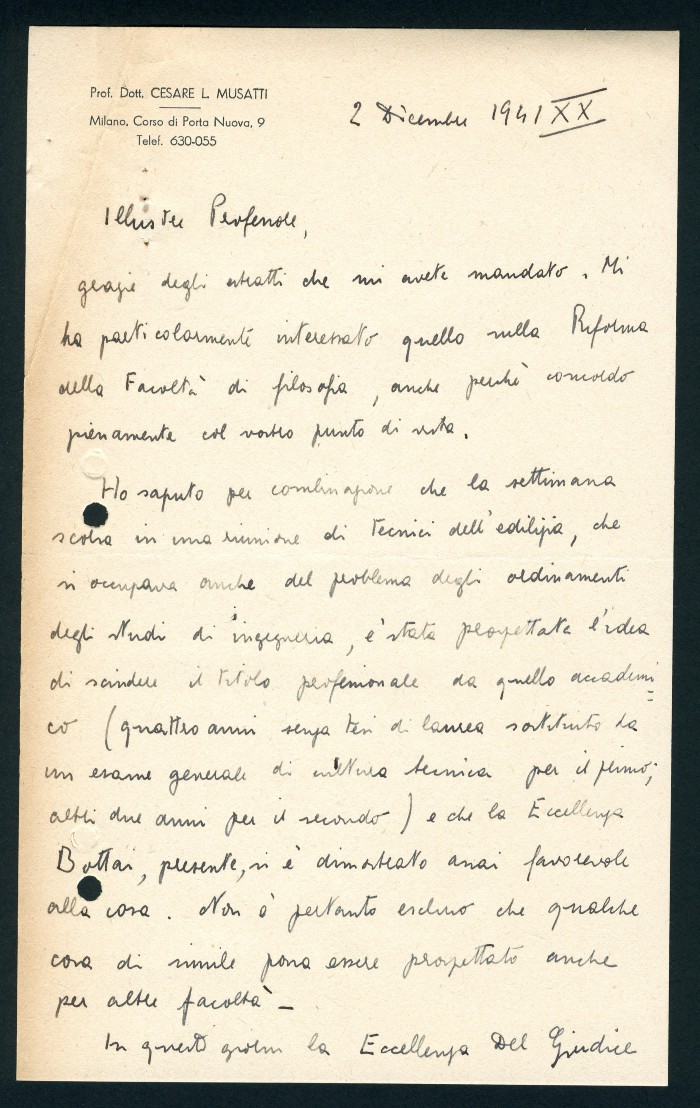 Prof. Dott. CESARE L. MUSATTI
Milano, Corso di Porta Nuova, 9
Telef. 630-055
2 Dicembre 1941 XX
Illustre Professore,
grazie degli estratti che mi avete mandato. Mi
ha particolarmente interessato quello sulla Riforma
della Facoltà di filosofia, anche perchè concordo
pienamente col vostro punto di vista.
Ho saputo per combinazione che la settimana
scorsa in una riunione di tecnici dell'edilizia, che
si occupava anche del problema degli ordinamenti
degli studi di ingegneria, è stata prospettata l'idea
di scindere il titolo professionale da quello accademi=
co (quattro anni senza tesi di laurea sostituito da
un esame generale di cultura tecnica per il primo;
altri due anni per il secondo) e che la Eccellenza
Bottai, presente, si è dimostrato assai favorevole
alla cosa. Non è pertanto escluso che qualche
cosa di simile possa essere prospettato anche
per altre facoltà –
In questi giorni la Eccellenza Del Giudice